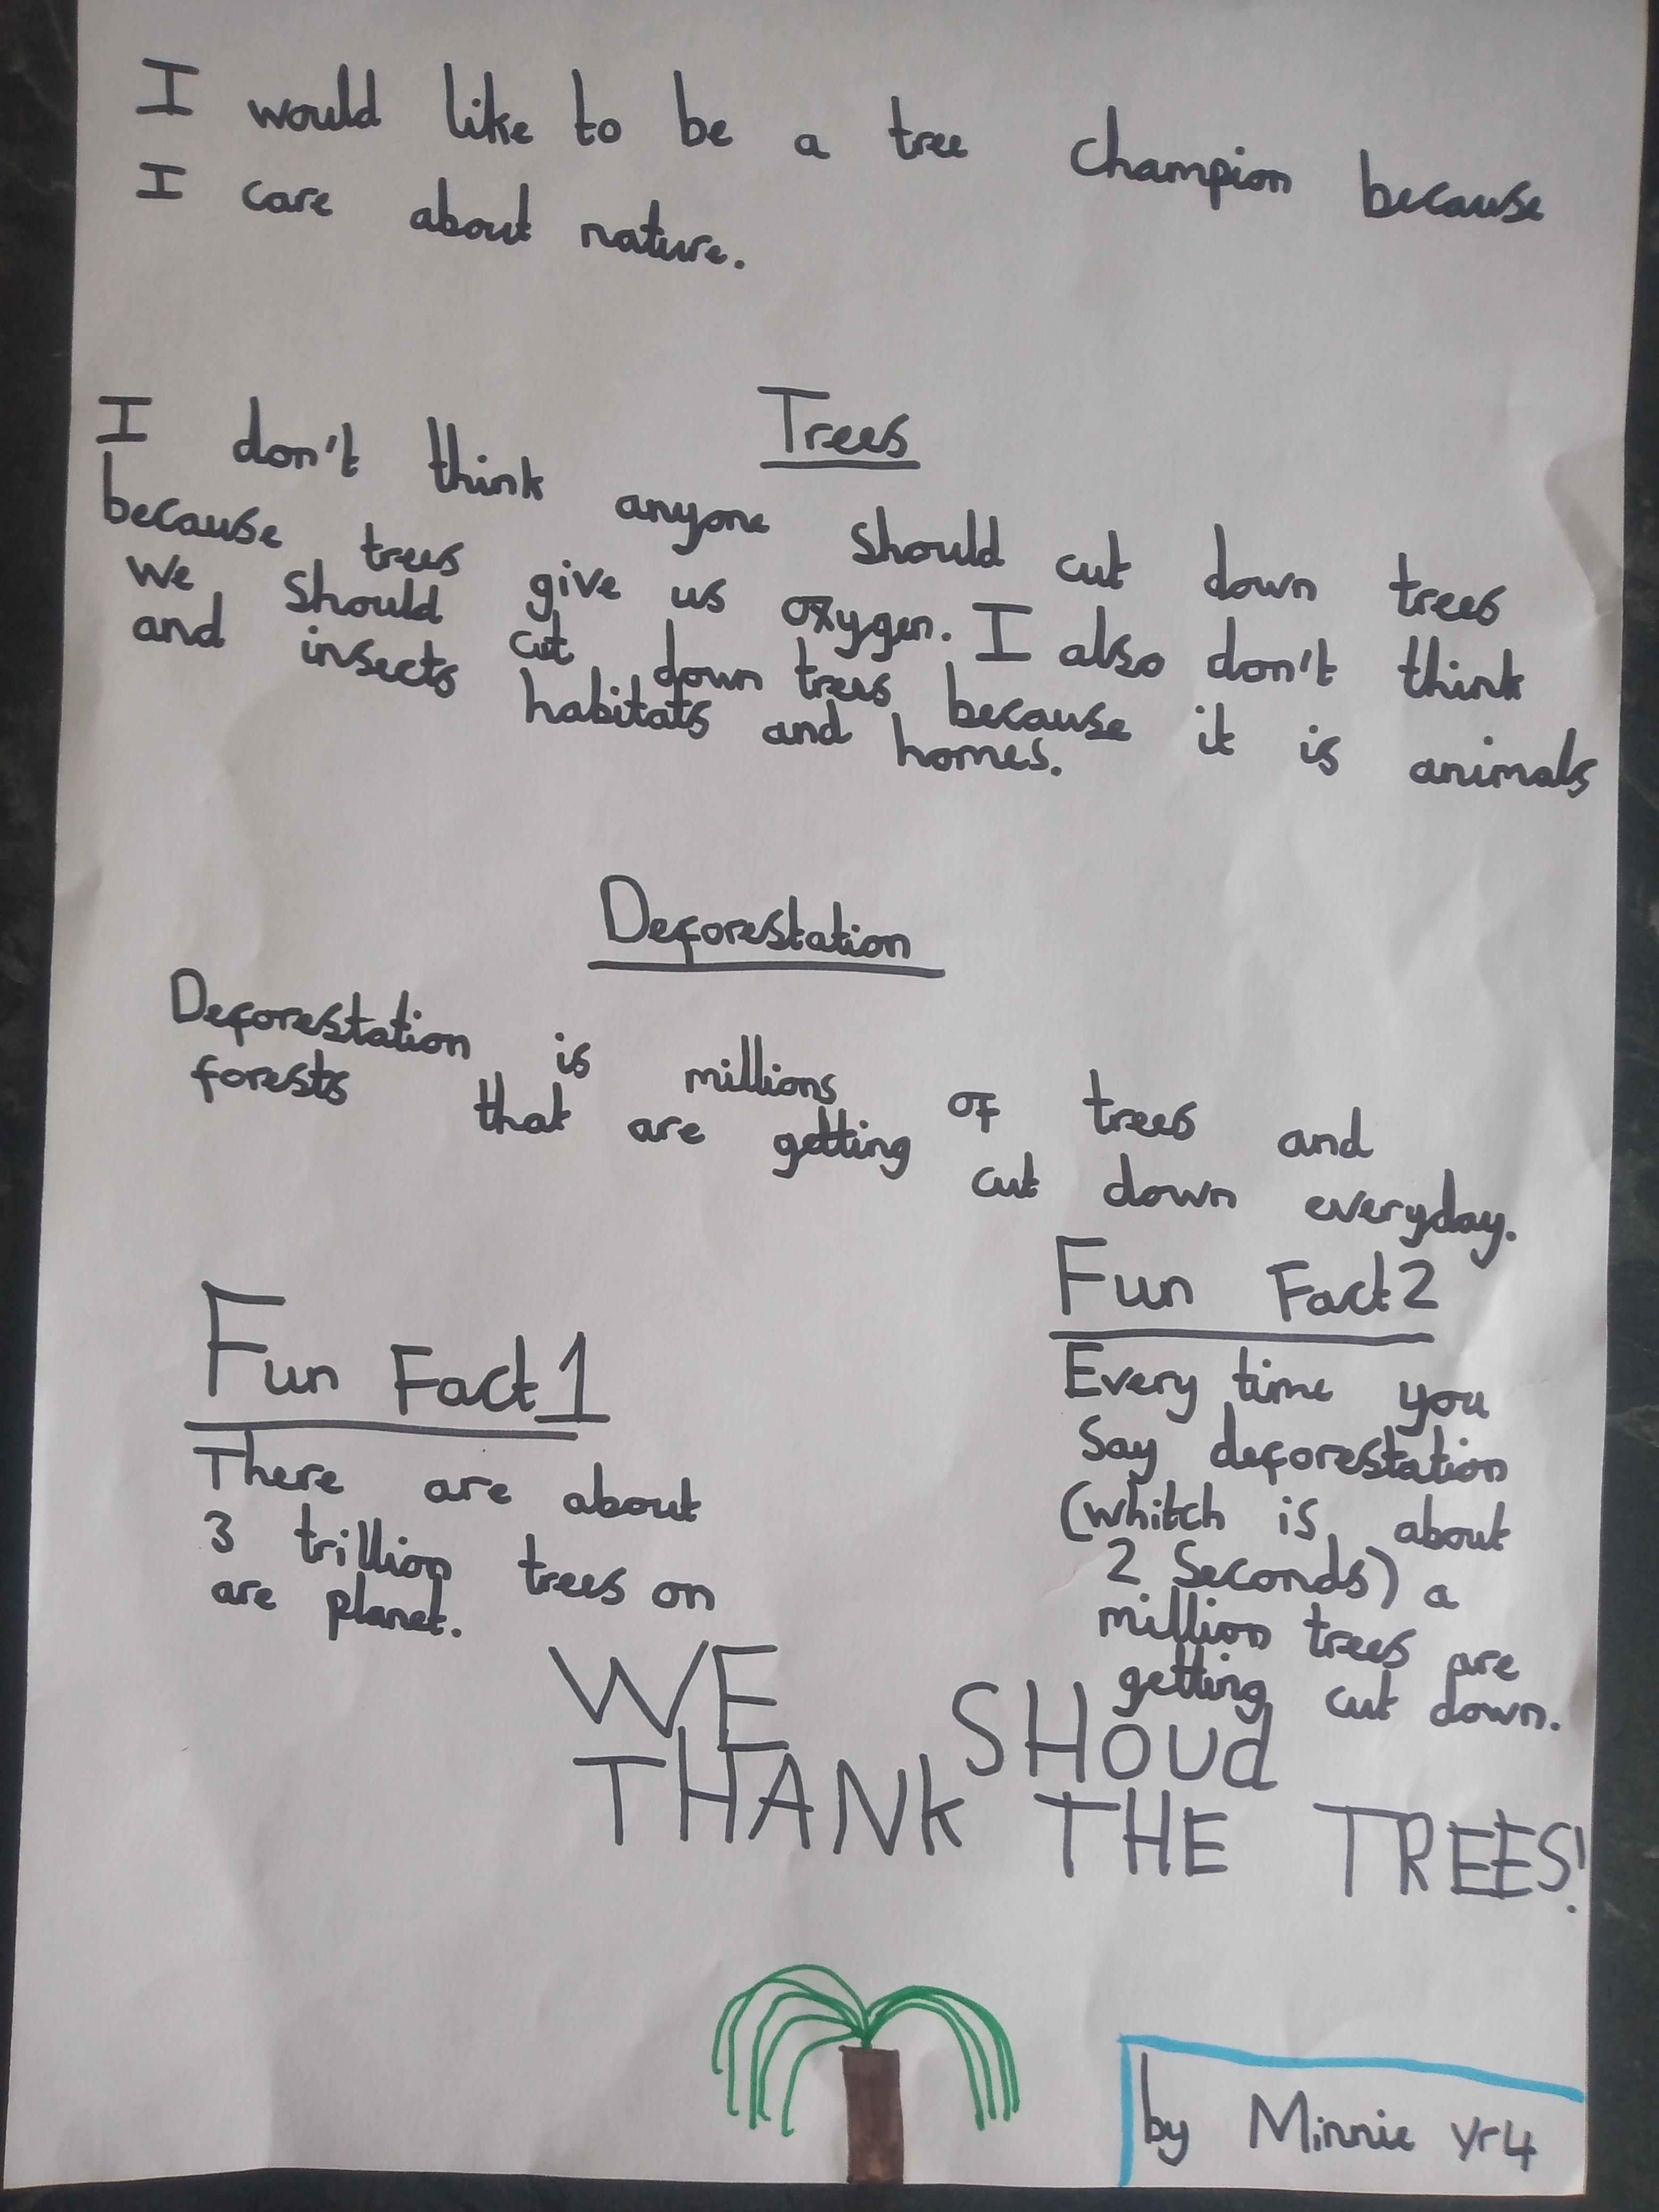 I would like to be a tree champion because
I care about nature.
Trees
I don't think anyone should cut down trees
because trees give us oxygen. I also don't think
we should cut down trees because it is animals
and insects habitats and homes.
Deforestation
Deforestation is millions of trees and
forests that are getting cut down everyday.
Fun Fact 1
There are about
3 trillion trees on
are planet.
Fun Fact 2
Every time you
Say deforestation
(whitch is about
2 Seconds) a
million trees are
getting cut down.
WE SHOUd
THANk THE TREES!
by Minnie yr4